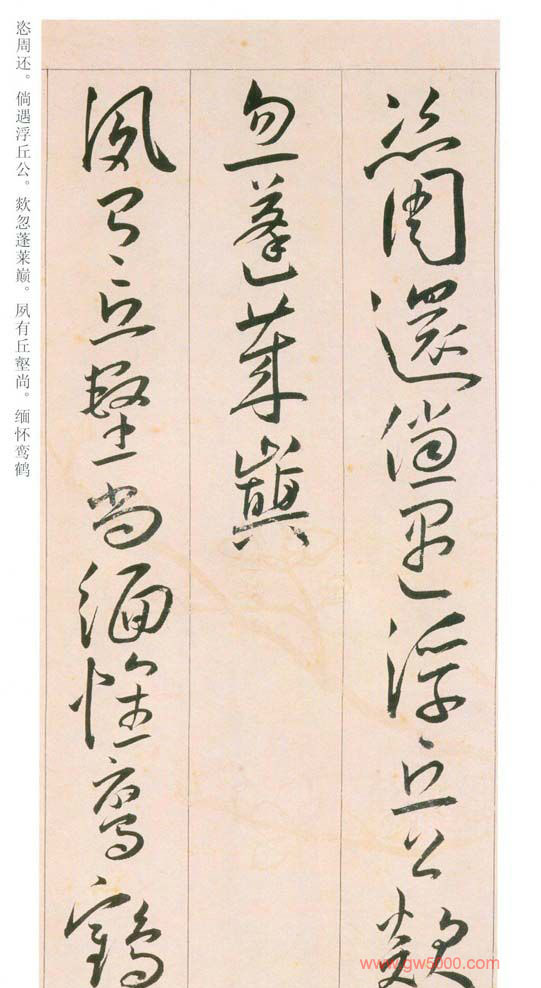 恣周還倘遇浮丘公欻
忽蓬萊巔
夙有丘壑尚緬懷鸾鶴
恣周还。倘遇浮丘公。欻忽蓬莱巅。夙有丘壑尚。缅怀鸾鹤
www.gw5000.com